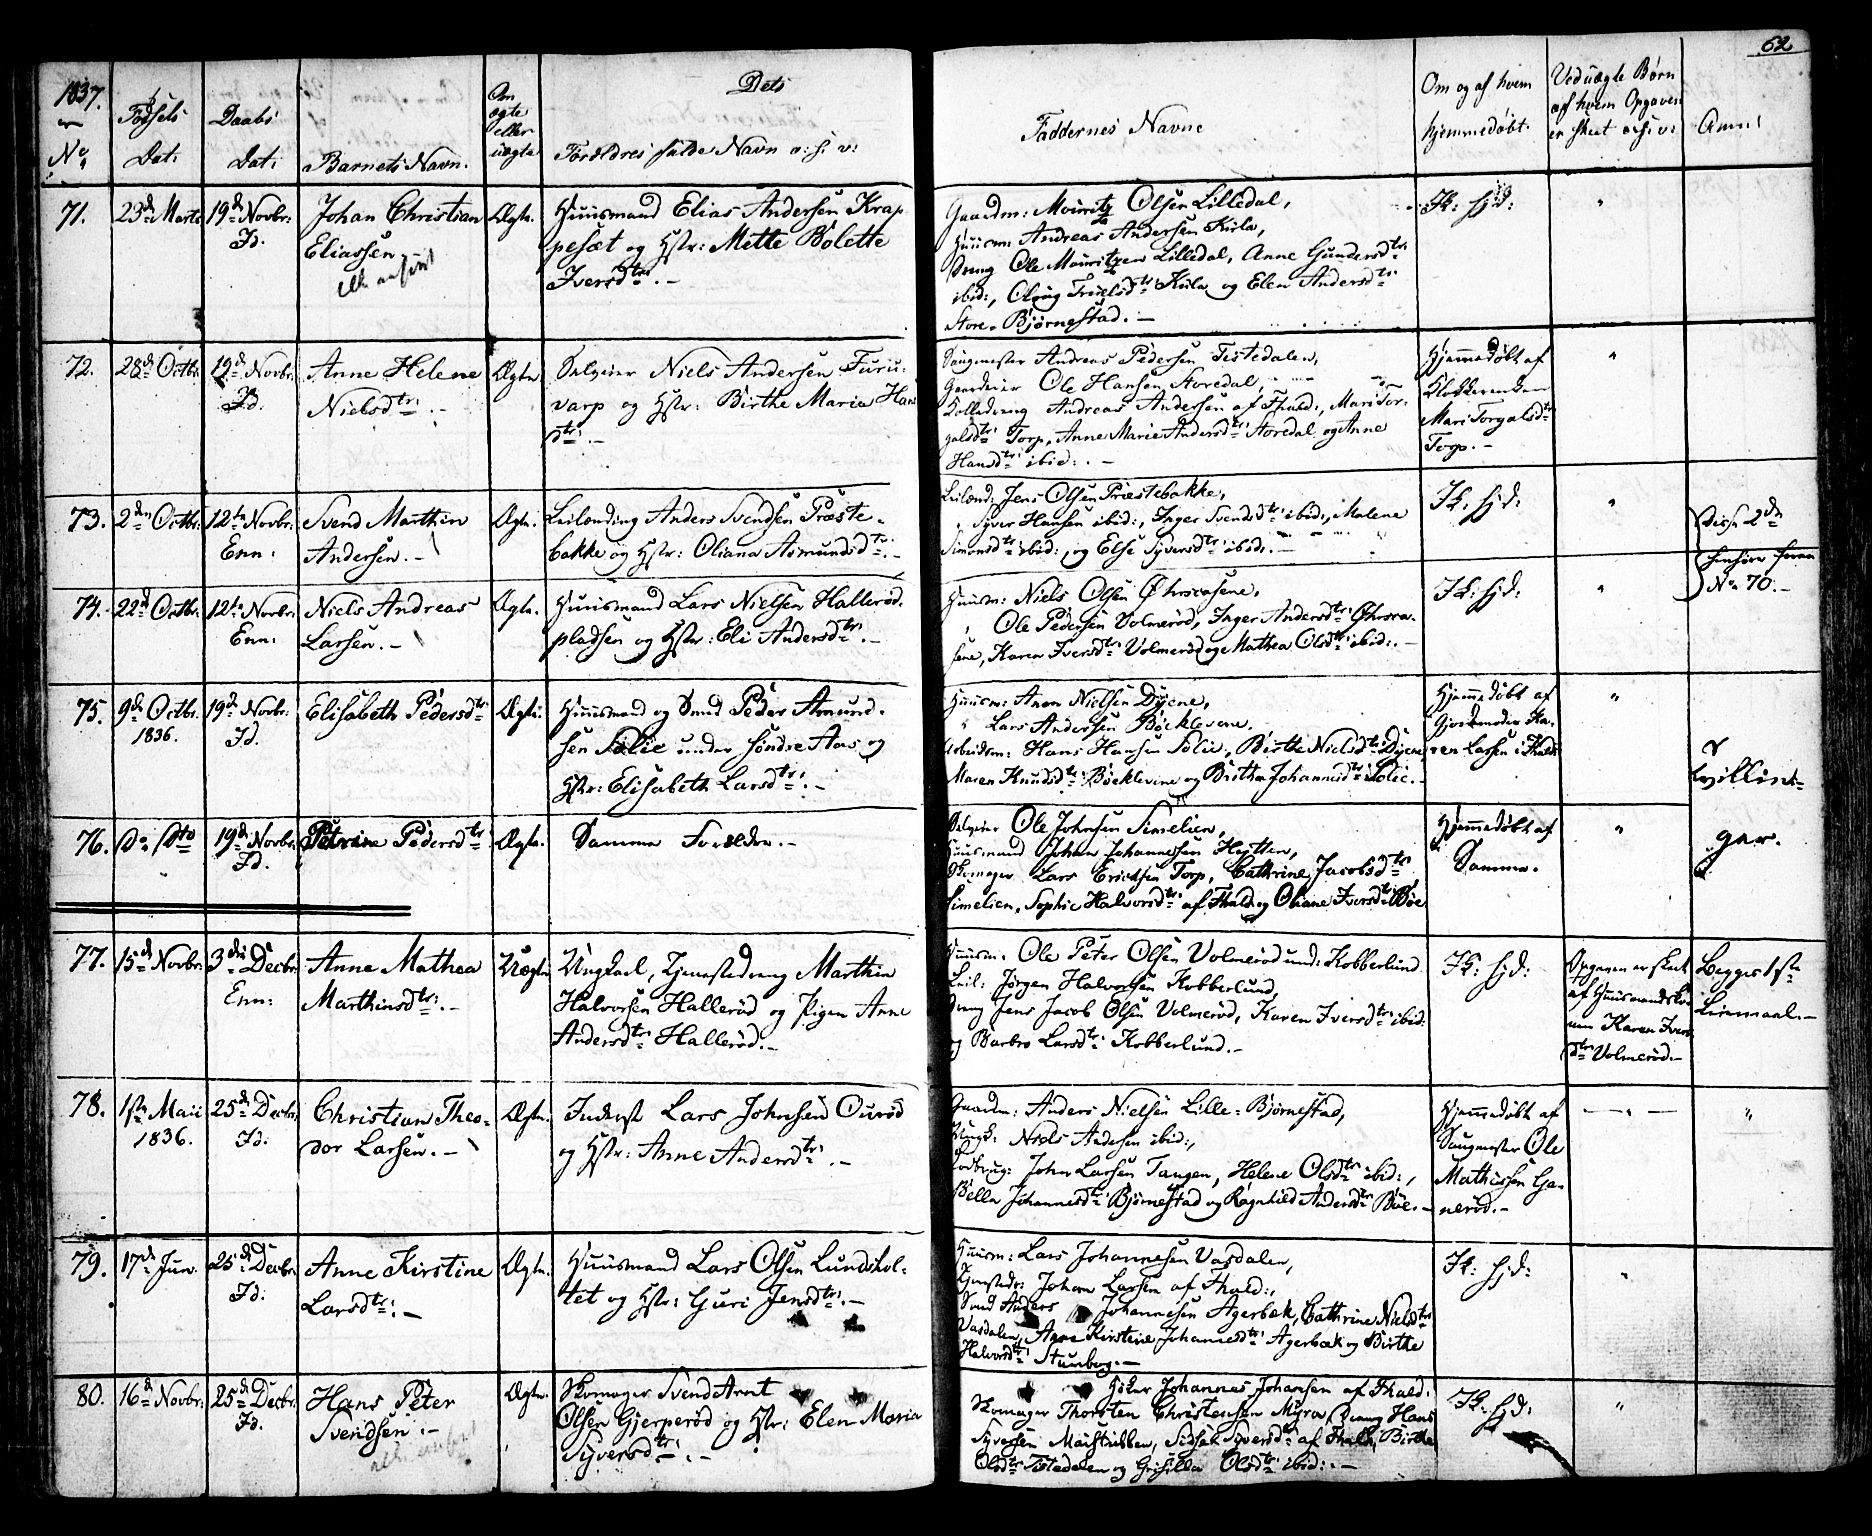 62
1837.
No
Fødsels
Dat:
Daabs
Dat:
Barnets Navn.
Om
ægte
eller
uægte
Dets
Forældres fulde Navn o: s: v:
Faddernes Navne
Om og af hvem
hjemmedøbt.
Ved uægte Børn
af hvem Opgaven
er skeet o: s: v:
Anm:
71.
23de Marts
19de Novbr:
Id.
Johan Christian
Eliassen
Ægte.
Huusmand Elias Andersen Krap
pesæt og Hstr: Mette Bolette
Iversdtr: . –
Gaardm: Mouritz Olsen Lilledal,
Huusm: Andreas Andersen Kirla,
Dreng Ole Mouritzen Lilledal, Anne Gundersdtr:
ibid:, Oloug Truelsdtr: Kirla og Elen Andersdtr:
Store-Bjørnestad. –
Ik: hjd:
"
72.
28de Octbr:
19de Novbr:
Id.
Anne Helene
Nielsdtr: . –
Ægte
Selveier Niels Andersen Furu-
varp og Hstr: Birthe Maria Hans
dtr: . –
Saugmester Andreas Pedersen Tistedalen,
Gaardeier Ole Hansen Storedal,
Andreas Andersen af Fhald:, Mari Tor-
galsdtr: Torp, Anne Marie Andersdtr: Storedal og Anne
Hansdtr: ibid: . –
Hjemmedøbt af
Klokkerenken
Mari Torgalsdtr:
Torp. –
"
73.
2den Octbr:
12te Novbr:
Enn:
Svend Marthin
Andersen. –
Ægte.
Leilænding Anders Svendsen Præste-
bakke og Hstr: Oliana Asmundsdtr: . –
Leilænd: Jens Olsen Præstebakke,
" Syver Hansen ibid:, Inger Svendsdtr: ibid:, Malene
Simonsdtr: ibid:, og Else Syversdtr: ibid: . –
Ik: hjd:
"
Disse 2de
henhøre foran
No 70. –
74.
22de Octbr:
12te Novbr:
Enn:
Niels Andreas
Larsen. –
Ægte.
Huusmand Lars Nielsen Hallerød-
pladsen og Hstr: Eli Andersdtr: . –
Huusm: Niels Olsen Øhrsaasene,
" Ole Pedersen Volmerød, Inger Andersdtr: Øhrsaa-
sene, Karen Iversdtr: Volmerød og Mathea Olsdtr: ibid: . –
Ik: hjd:
"
75.
9de Octbr:
1836.
19de Novbr:
Id.
Elisabeth Pedersdtr:
Ægte.
Huusmand og Smed Peder Amund-
sen Solie under søndre Aas og
Hstr: Elisabeth Larsdtr: . –
Huusm: Anon Nielsen Dyene,
" Lars Andersen Bøeklevene,
Arbeidsm: Hans Hansen Solie, Birthe Nielsdtr: Dyene
Maren Knudsdtr: Bøeklevine og Birthe Johannesdtr: Solie. –
Hjemmedøbt af
Gjordemoder Ka-
ren Larsen i Fhald:
"
Tvillin-
ger.
76.
Do Dto
"
19de Novbr:
Id.
Petrine Pedersdtr:
Ægte.
Samme Forældre. –
Selveier Ole Johnsen Simelien,
Huusmand Johan Johannessen Hytten,
Skomager Lars Ericksen Torp, Cathrine Jacobsdtr:
Simelien, Sophie Halvorsdtr: af Fhald: og Oliane Iversdtr: Bøe
Hjemmedøbt af
Samme.
"
77.
15de Novbr:
3die Decbr:
Enn:
Anne Mathea
Marthinsdtr: . –
Uægte
Ungkarl, Tjenestedreng Marthin
Halvorsen Hallerød og Pigen Anne
Andersdtr: Hallerød. –
Huusm: Ole Peter Olsen Volmerød und: Kobberlund
Leil: Jørgen Halvorsen Kobberlund
Dreng Jens Jacob Olsen Volmerød, Karen Iversdtr: ibid:
og Barbro Larsdtr: Kobberlund. –
Ik: hjd:
Opgaven er skeet
af Huusmandsko-
nen Karen Ivers
dtr: Volmerød. –
Begges 1ste
Leiermaal. –
78.
1ste Maii
1836.
25de Decbr:
Id.
Christian Theo-
dor Larsen. –
Ægte.
Inderst Lars Johnsen Ourød
og Hstr: Anne Andersdtr: . –
Gaardm: Anders Nielsen Lille-Bjørnestad,
Ungk: Niels Andersen ibid:,
John Larsen Tangen, Helene Olsdtr: ibid:,
Bella Johannesdtr: Bjørnestad og Ragnhild Andersdtr: Bøe. –
Hjemmedøbt af
Saugmester Ole
Mathissen Ga-
nerød. –
— " —
"
79.
17de Jun.
25de Decbr:
Id:
Anne Kirstine
Larsdtr: . –
Ægte.
Huusmand Lars Olsen Lundshol-
tet og Hstr: Guri Jensdtr: . –
Huusm: Lars Johannesen Vasdalen,
Tjenestedr: Johan Larsen af Fhald:,
Smed Anders Johannesen Agerbæk, Cathrine Nielsdtr:
Vasdalen, Anne Kirstine Johannesdtr: Agerbæk og Birthe
Halvorsdtr: Stumberg. –
Ik: hjd:
"
80.
16de Novbr:
25de Decbr:
Id.
Hans Peter
Svendsen. –
Ægte.
Skomager Svend Arnt
Olsen Gjerperød og Hstr: Elen Maria
Syversdtr: . –
Johannes Johansen af Fhald:
Skomager Thorsten Christensen Myra, Dreng Hans
Syversen Maistubben, Sidsel Syversdtr: af Fhald:, Birthe
Olsdtr: Tistedalen og Grisilla Olsdtr: ibid: . –
Ik: hjd:
"